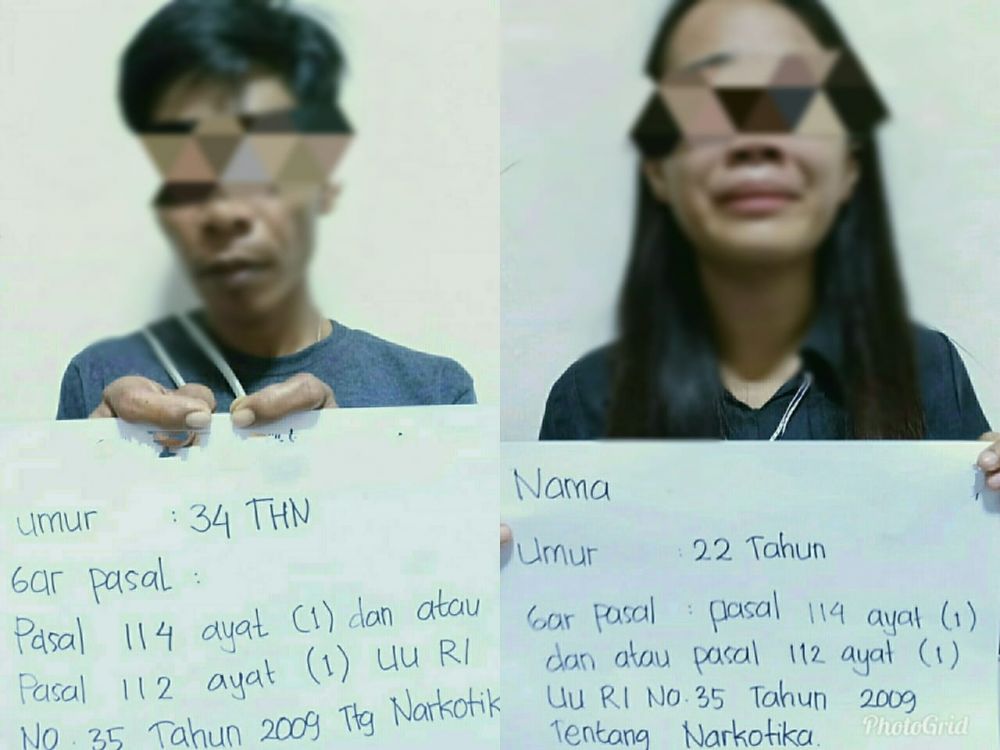 umur : 34 THN
Gar pasal :
Pasal 114 ayat (1) dan atau
Pasal 112 ayat (1) UU RI
No. 35 Tahun 2009 Ttg Narkotik
Nama
Umur : 22 Tahun
Gar pasal : pasal 114 ayat (1)
dan atau pasal 112 ayat (1)
UU RI No. 35 Tahun 2009
Tentang Narkotika.
PhotoGrid